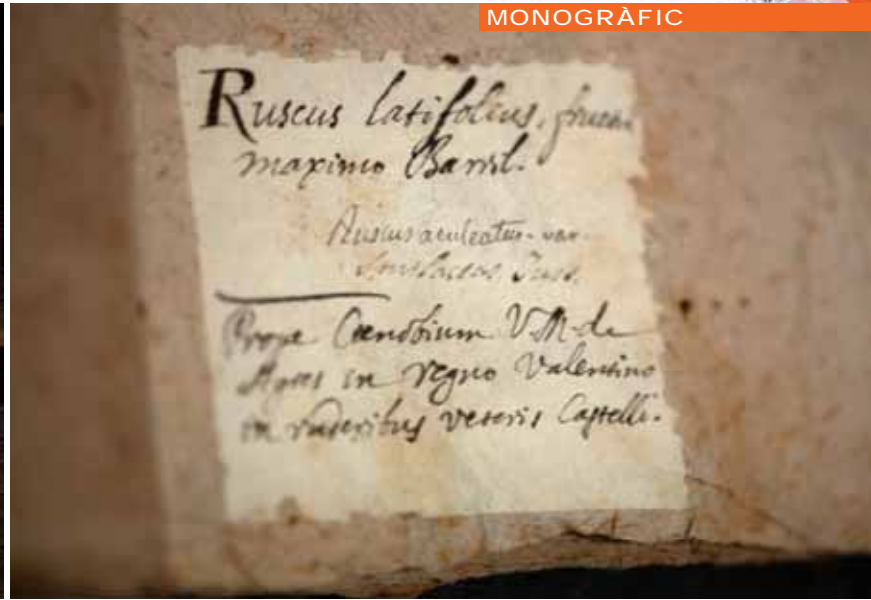 MONOGRÀFIC
Ruscus latifolius, fructu
maximo Barrel.
Ruscus aculeatus - var.
Juss.
Prope Cœnobium V. M. de
Agres in regno Valentino
in ruderibus veteris Castelli.